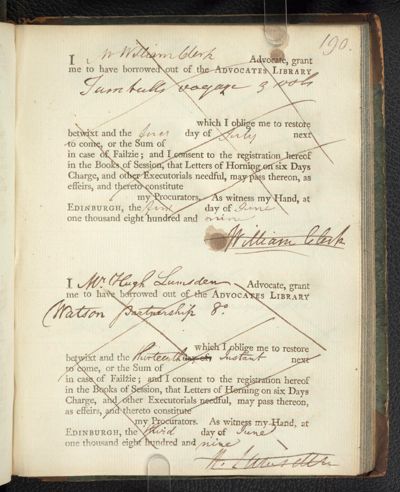 190.
I Mr William Clerk Advocate, grant
me to have borrowed out of the ADVOCATES LIBRARY
Turnbulls voyage 3 vols
which I oblige me to restore
betwixt and the first day of July next
to come, or the Sum of
in case of Failzie; and I consent to the registration hereof
in the Books of Session, that Letters of Horning on six Days
Charge, and other Executorials needful, may pass thereon, as
effeirs, and thereto constitute
my Procurators. As witness my Hand, at
EDINBURGH, the day of June
one thousand eight hundred and nine
William Clerk
I Mr Hugh Lumsden Advocate, grant
me to have borrowed out of the ADVOCATES LIBRARY
Watson partnership 8o
which I oblige me to restore
betwixt and the thirteenth day of instant next
to come, or the Sum of
in case of Failzie; and I consent to the registration hereof
in the Books of Session, that Letters of Horning on six Days
Charge, and other Executorials needful, may pass thereon,
as effeirs, and thereto constitute
my Procurators. As witness my Hand, at
EDINBURGH, the third day of June
one thousand eight hundred and nine
H. Lumsden